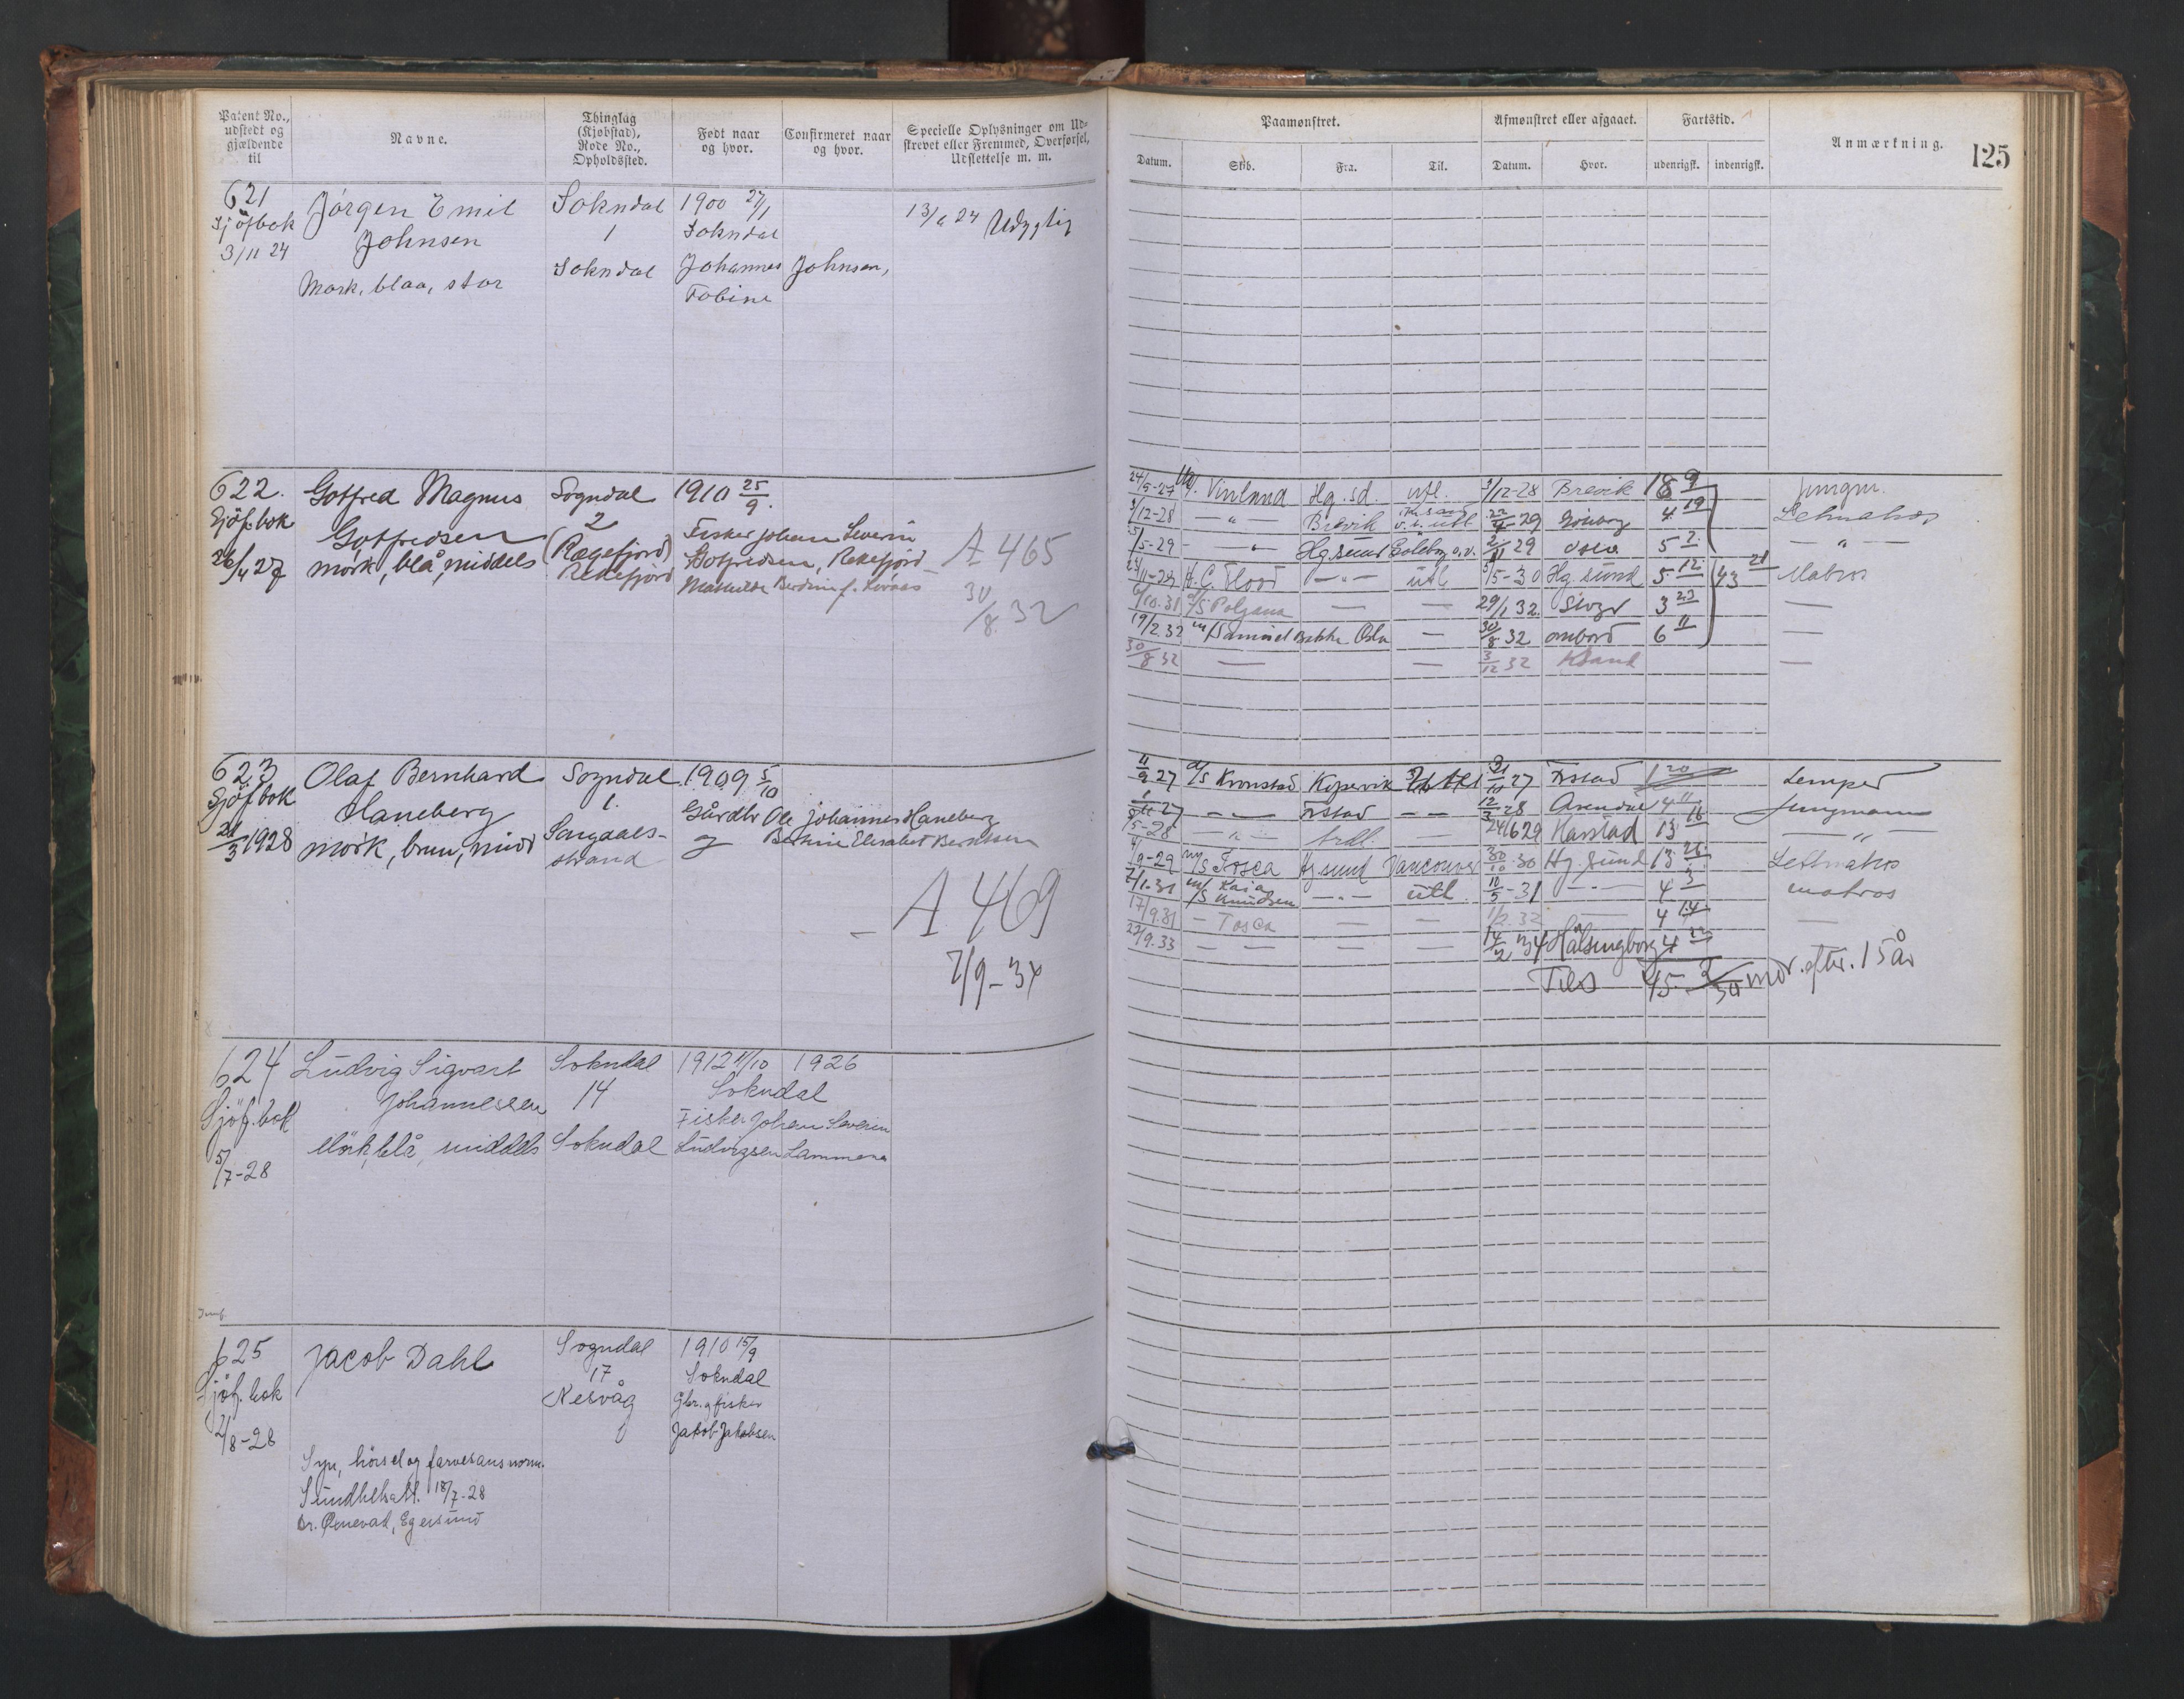 Patent No., udstedt og gjældende til
Navne.
Thinglag (Kjøbstad), Rode No., Opholdssted.
Født naar og hvor.
Confirmeret naar og hvor.
Specielle Oplysninger om Udskrevet eller Fremmed, Overførsel, Udslettelse m. m.
Paamønstret.
Afmønstret eller afgaaet.
Fartstid.
Anmærkning.
125
Datum.
Skib.
Fra.
Til.
Datum.
Hvor.
udenrigsk.
indenrigsk.
621
Sjöfbok
3/11 24
Jörgen Emil
Johnsen
Mork, blaa, stor
Sokndal
1
Sokndal
1900 27/1
Sokndal
Johannes Johnsen,
Tobine
13/6 24 Udygtig
622.
Sjöf.bok
26/4 27
Gotfred Magnus
Gotfredsen
mörk, blå, middels
Sogndal
2
(Rægefjord)
Rekefjord
1910 25/9.
Fisker Johan Severin
Gotfredsen, Rekefjord
A 465
30/8 32
24/5-27 Vinland Hg.sd. utl. 3/12-28 Brevik 18 9 Jungm.
3/12-28 — " — Brevik 22/4-29 4 19 Letmatros
/5-29 — " — Hg.sund 2/11 29 Oslo 5 2 — " —
— " — utl /5-30 Hg.sund 5 12 43 21 Matros
6/10.31 — — 29/1 32. 3 23 —
19/2.32 Oslo — 30/8 32 ombord 6 11 —
30/8 32 — — 3/12 32 Ksand —
623
Sjöfbok
21/3 1928
Olaf Bernhard
Haneberg
mörk, brun, midd
Sogndal
1.
Sogndals-
strand
1909 5/10
Gårdbr Ole Johannes Haneberg
og Bertine Elisabet Berntsen
A 469
7/9-34
11/9 27 d/s Kronstad Kopervik 31/10 27 Frstad 1 20
1/11-27 — " — Frstad — — 12/3-28 Arendal 4 11 Jungmann
/5-28 — " — — 24/6 29 Harstad 13 16 — " —
/9-29 m/s Tosca Hg.sund Vancouver 30/10-30 Hg.sund 13 26 Letmatros
7/1-31 m/s Kaia Knudsen — " — utl. 10/5-31 — " — 4 3 matros
17/9.31 — Tosca — — 1/2.32 — 4 14 —
22/9.33 — — — — 14/2 34 Hälsingborg 4 22
Tils 45 - 2/30 mdr. efter. 15 år
624
Sjöf.bok
5/7-28
Ludvig Sigvart
Johannessen
Mörk, blå, middels
Sokndal
14
Sokndal
1912 11/10 1926
Sokndal
Fisker Johan Severin
Ludvigsen Lammena
625
Sjöf.bok
2/8-28
Jacob Dahl
Syn, hörsel og farvesans norm.
Sundhetsatt. 18/7-28
Egersund
Sogndal
17
Nesvåg
1910 15/9
Sokndal
Gbr. og fisker
Jakob Jakobsen